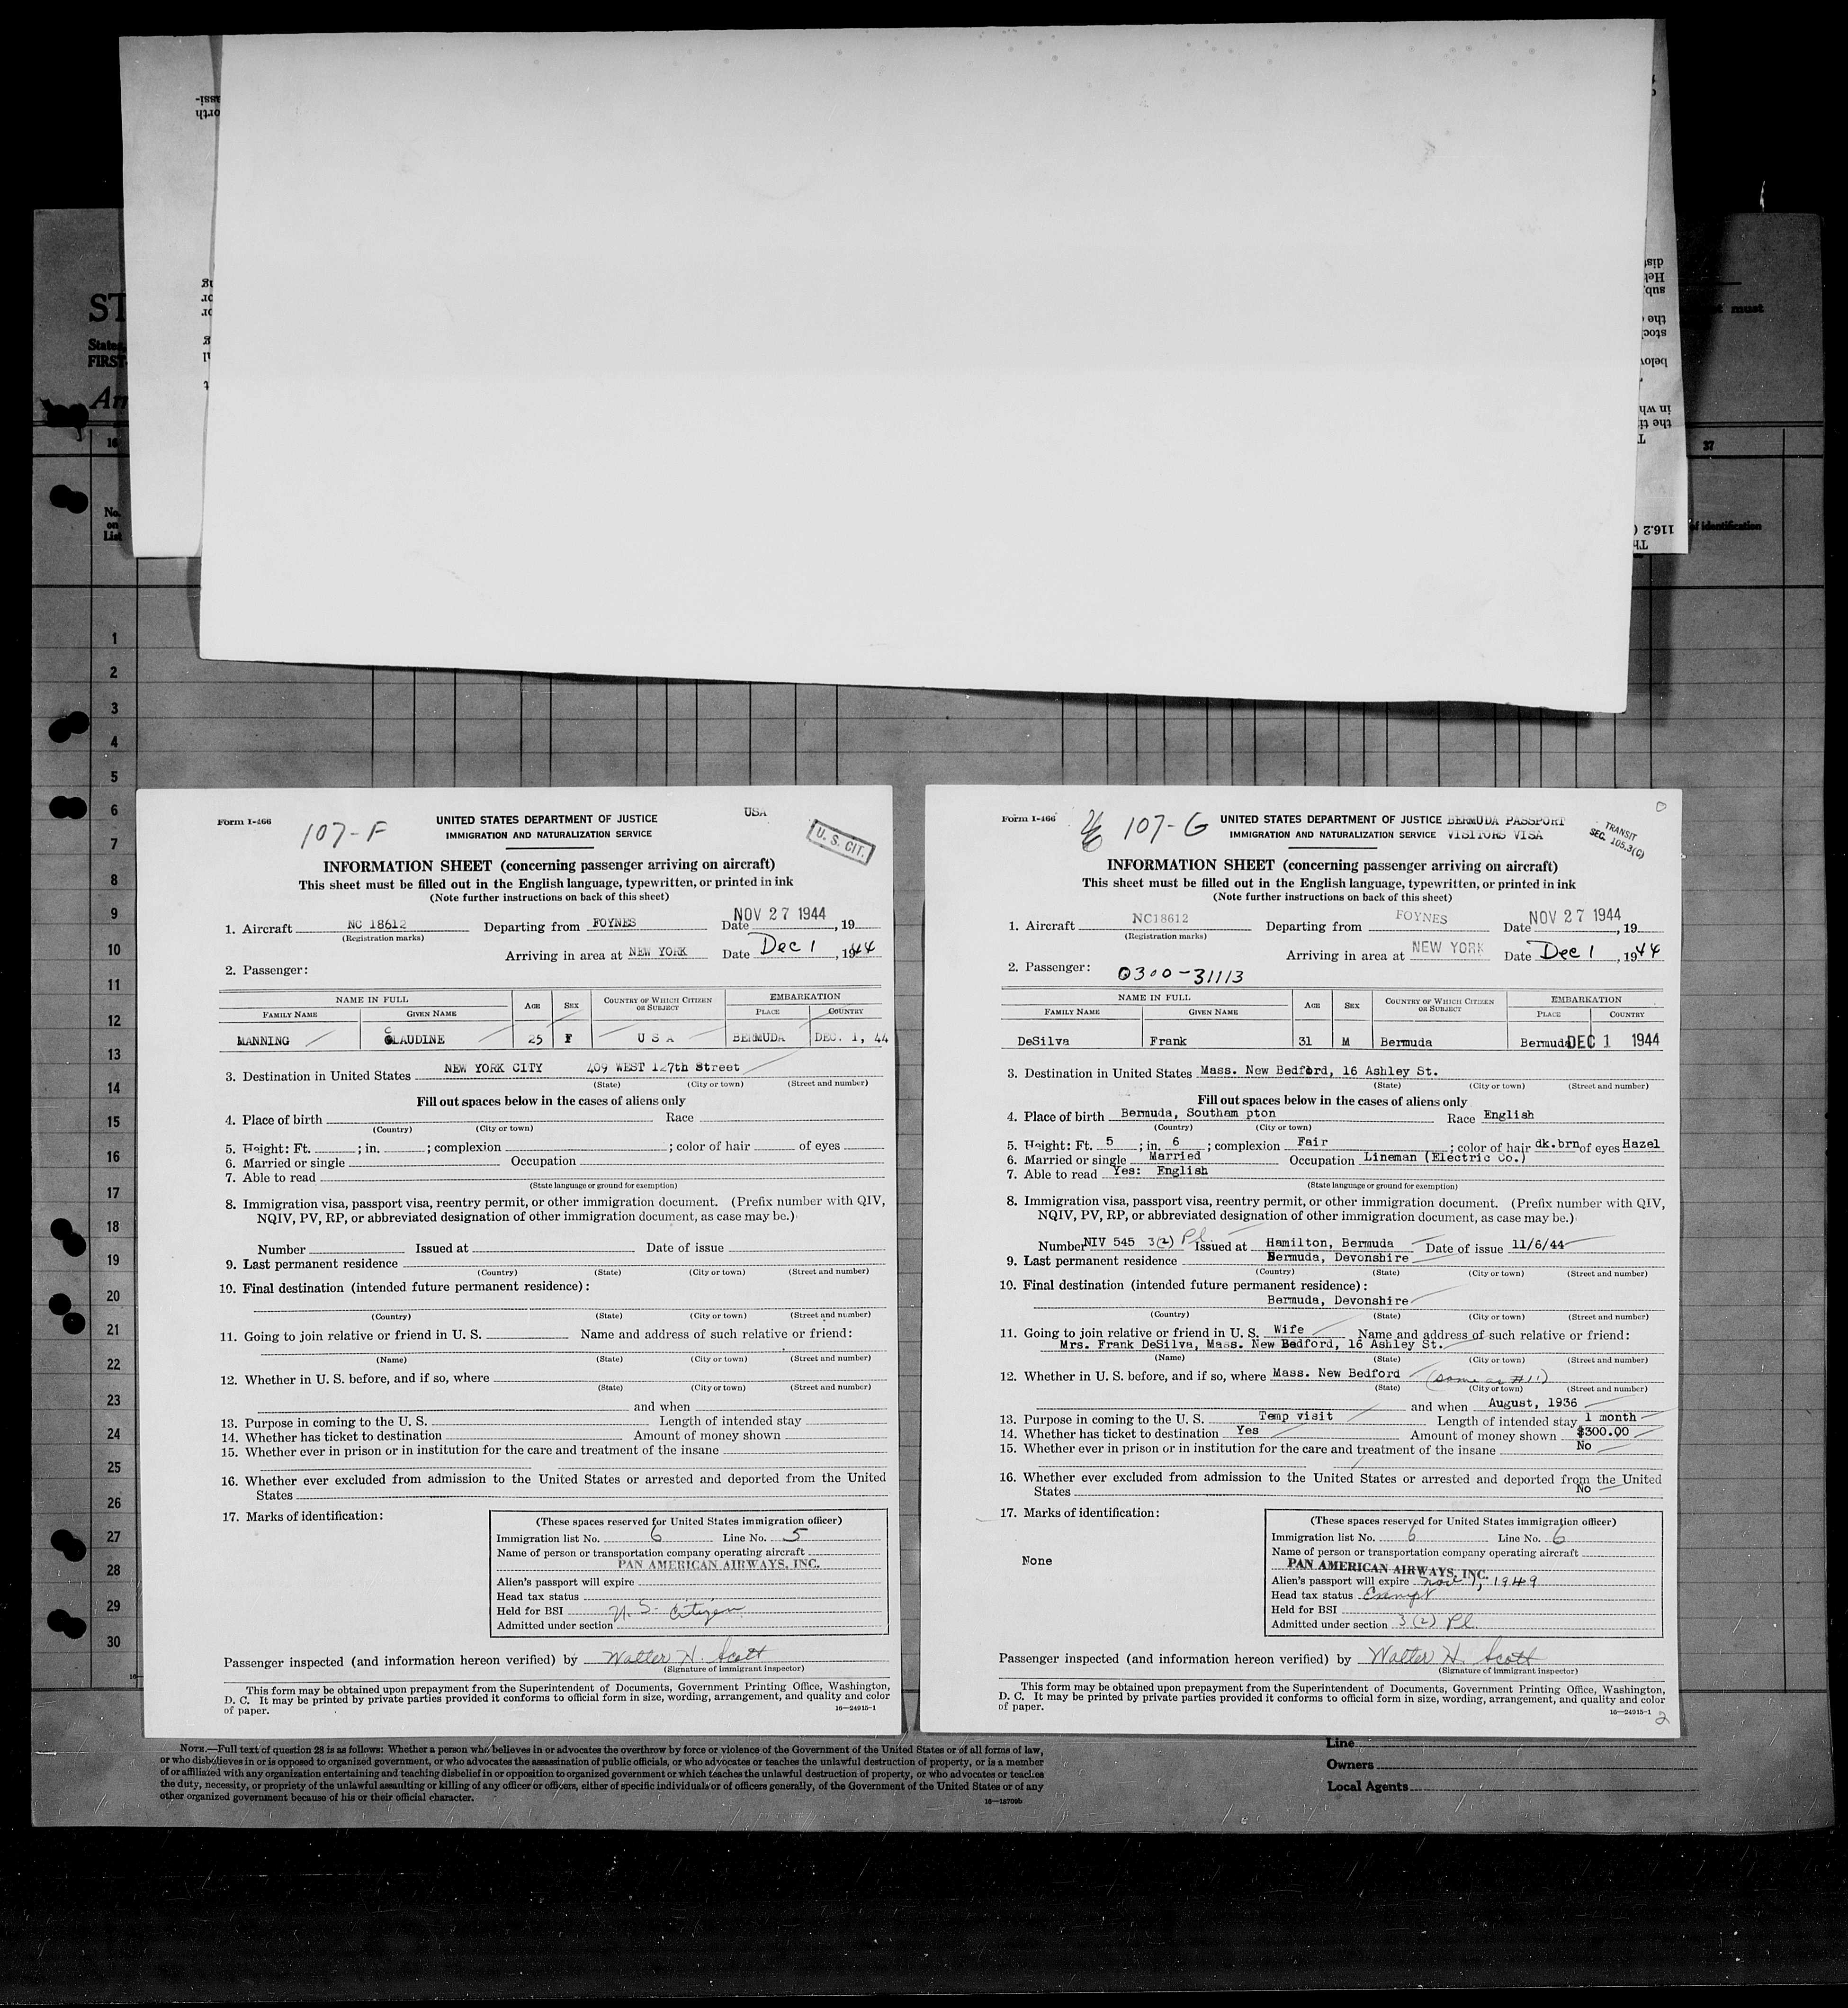 ST
States,
FIRST-
An
16
No.
on
List
must
37
of identification
116.2 (
1
2
3
4
5
6
7
8
9
10
11
12
13
14
15
16
17
18
19
20
21
22
23
24
25
26
27
28
29
30
Form I-466
107-F
UNITED STATES DEPARTMENT OF JUSTICE
IMMIGRATION AND NATURALIZATION SERVICE
USA
U. S. CIT.
INFORMATION SHEET (concerning passenger arriving on aircraft)
This sheet must be filled out in the English language, typewritten, or printed in ink
(Note further instructions on back of this sheet)
1. Aircraft NC 18612 Departing from FOYNES Date NOV 27 1944, 19
(Registration marks)
Arriving in area at NEW YORK Date Dec 1, 1944
2. Passenger:
NAME IN FULL AGE SEX COUNTRY OF WHICH CITIZEN OR SUBJECT EMBARKATION
FAMILY NAME GIVEN NAME PLACE COUNTRY
MANNING CLAUDINE 25 F U S A BERMUDA DEC. 1, 44
3. Destination in United States NEW YORK CITY 409 WEST 127th Street
(State) (City or town) (Street and number)
Fill out spaces below in the cases of aliens only
4. Place of birth Race
(Country) (City or town)
5. Height: Ft. ; in. ; complexion ; color of hair of eyes
6. Married or single Occupation
7. Able to read
(State language or ground for exemption)
8. Immigration visa, passport visa, reentry permit, or other immigration document. (Prefix number with QIV,
NQIV, PV, RP, or abbreviated designation of other immigration document, as case may be.)
Number Issued at Date of issue
9. Last permanent residence
(Country) (State) (City or town) (Street and number)
10. Final destination (intended future permanent residence):
(Country) (State) (City or town) (Street and number)
11. Going to join relative or friend in U. S. Name and address of such relative or friend:
(Name) (State) (City or town) (Street and number)
12. Whether in U. S. before, and if so, where
(State) (City or town) (Street and number)
and when
13. Purpose in coming to the U. S. Length of intended stay
14. Whether has ticket to destination Amount of money shown
15. Whether ever in prison or in institution for the care and treatment of the insane
16. Whether ever excluded from admission to the United States or arrested and deported from the United
States
17. Marks of identification:
(These spaces reserved for United States immigration officer)
Immigration list No. 6 Line No. 5
Name of person or transportation company operating aircraft
PAN AMERICAN AIRWAYS, INC.
Alien's passport will expire
Head tax status
Held for BSI U. S. Citizen
Admitted under section
Passenger inspected (and information hereon verified) by Walter H. Scott
(Signature of immigrant inspector)
This form may be obtained upon prepayment from the Superintendent of Documents, Government Printing Office, Washington,
D. C. It may be printed by private parties provided it conforms to official form in size, wording, arrangement, and quality and color
of paper. 16—24915-1
Form I-466
107-G
UNITED STATES DEPARTMENT OF JUSTICE BERMUDA PASSPORT
IMMIGRATION AND NATURALIZATION SERVICE VISITORS VISA
TRANSIT
SEC. 105.3(C)
INFORMATION SHEET (concerning passenger arriving on aircraft)
This sheet must be filled out in the English language, typewritten, or printed in ink
(Note further instructions on back of this sheet)
1. Aircraft NC18612 Departing from FOYNES Date NOV 27 1944, 19
(Registration marks)
Arriving in area at NEW YORK Date Dec 1, 1944
2. Passenger: 0300-31113
NAME IN FULL AGE SEX COUNTRY OF WHICH CITIZEN OR SUBJECT EMBARKATION
FAMILY NAME GIVEN NAME PLACE COUNTRY
DeSilva Frank 31 M Bermuda Bermuda DEC 1 1944
3. Destination in United States Mass. New Bedford, 16 Ashley St.
(State) (City or town) (Street and number)
Fill out spaces below in the cases of aliens only
4. Place of birth Bermuda, Southam pton Race English
(Country) (City or town)
5. Height: Ft. 5 ; in. 6 ; complexion Fair ; color of hair dk.brn of eyes Hazel
6. Married or single Married Occupation Lineman (Electric Co.)
7. Able to read Yes: English
(State language or ground for exemption)
8. Immigration visa, passport visa, reentry permit, or other immigration document. (Prefix number with QIV,
NQIV, PV, RP, or abbreviated designation of other immigration document, as case may be.)
Number NIV 545 3(2) Pl Issued at Hamilton, Bermuda Date of issue 11/6/44
9. Last permanent residence Bermuda, Devonshire
(Country) (State) (City or town) (Street and number)
10. Final destination (intended future permanent residence):
Bermuda, Devonshire
(Country) (State) (City or town) (Street and number)
11. Going to join relative or friend in U. S. Wife Name and address of such relative or friend:
Mrs. Frank DeSilva, Mass. New Bedford, 16 Ashley St.
(Name) (State) (City or town) (Street and number)
12. Whether in U. S. before, and if so, where Mass. New Bedford (same as #11)
(State) (City or town) (Street and number)
and when August, 1936
13. Purpose in coming to the U. S. Temp visit Length of intended stay 1 month
14. Whether has ticket to destination Yes Amount of money shown $300.00
15. Whether ever in prison or in institution for the care and treatment of the insane No
16. Whether ever excluded from admission to the United States or arrested and deported from the United
States No
17. Marks of identification:
None
(These spaces reserved for United States immigration officer)
Immigration list No. 6 Line No. 6
Name of person or transportation company operating aircraft
PAN AMERICAN AIRWAYS, INC.
Alien's passport will expire Nov 1, 1949
Head tax status Exempt
Held for BSI
Admitted under section 3(2) Pl.
Passenger inspected (and information hereon verified) by Walter H. Scott
(Signature of immigrant inspector)
This form may be obtained upon prepayment from the Superintendent of Documents, Government Printing Office, Washington,
D. C. It may be printed by private parties provided it conforms to official form in size, wording, arrangement, and quality and color
of paper. 16—24915-1
2
NOTE.—Full text of question 28 is as follows: Whether a person who believes in or advocates the overthrow by force or violence of the Government of the United States or of all forms of law,
or who disbelieves in or is opposed to organized government, or who advocates the assassination of public officials, or who advocates or teaches the unlawful destruction of property, or is a member
of or affiliated with any organization entertaining and teaching disbelief in or opposition to organized government or which teaches the unlawful destruction of property, or who advocates or teaches
the duty, necessity, or propriety of the unlawful assaulting or killing of any officer or officers, either of specific individuals or of officers generally, of the Government of the United States or of any
other organized government because of his or their official character. 16—18709b
Line
Owners
Local Agents